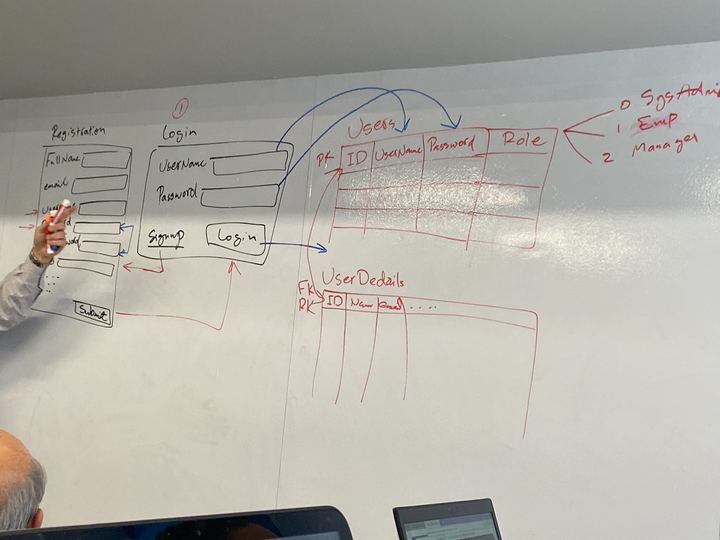 Registration
FullName
email
Submit
1
Login
UserName
Password
Signup
Login
Users
PK ID UserName Password Role
0 SysAdmin
1 Emp
2 Manager
UserDedails
FK
PK ID Name email ....